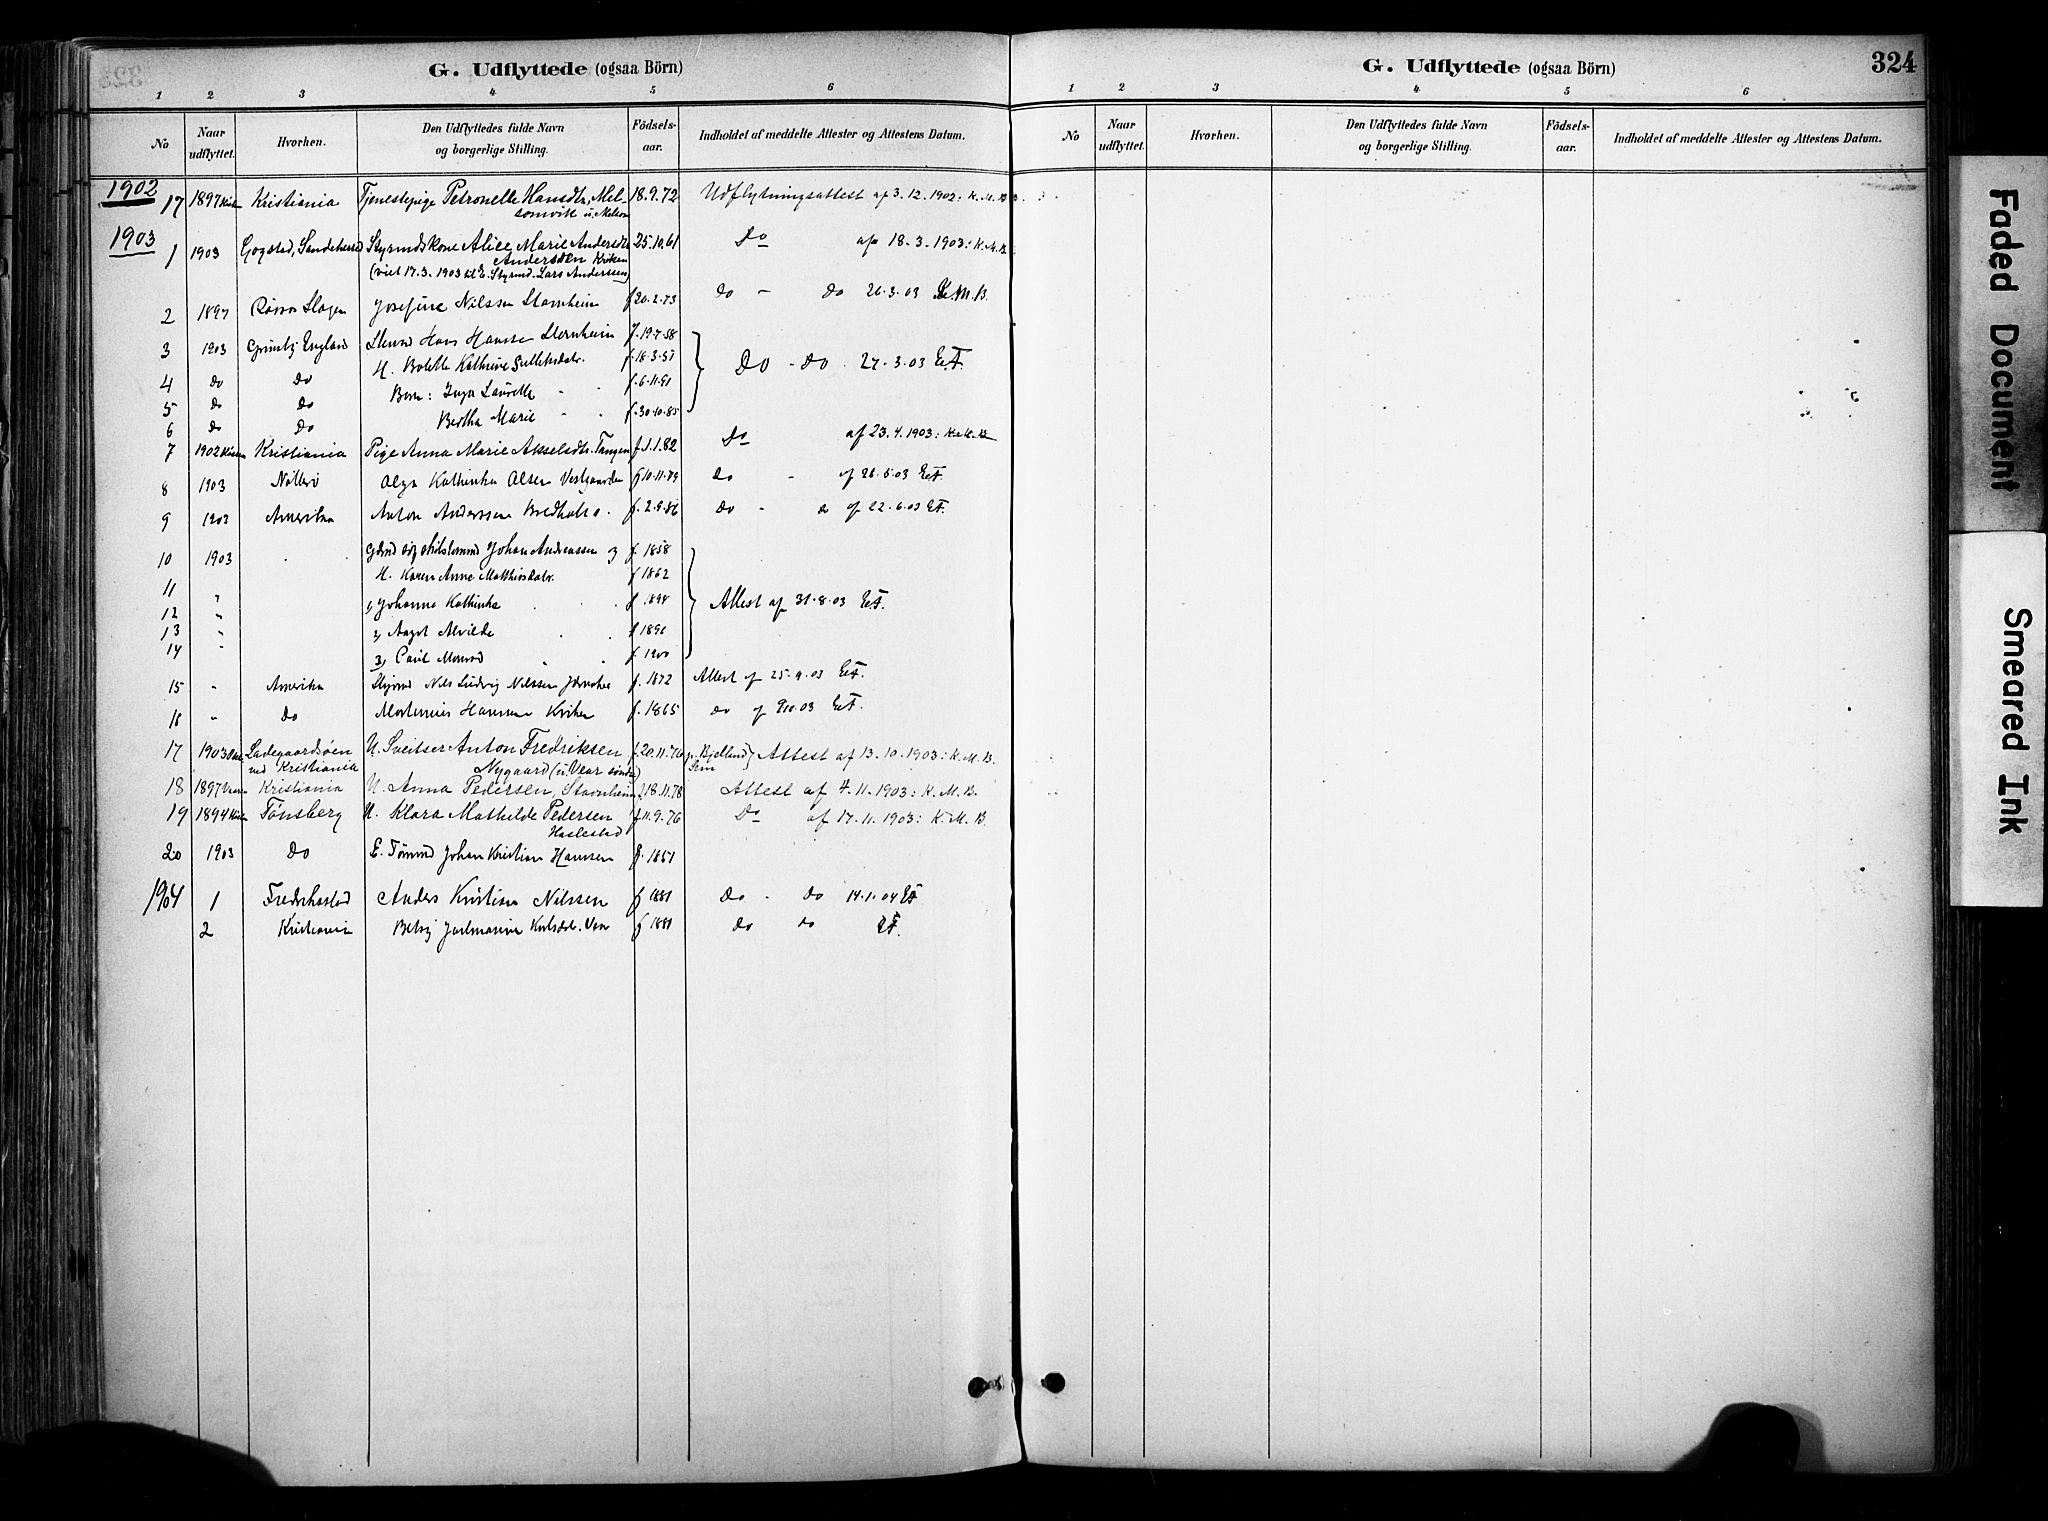 G. Udflyttede (ogsaa Börn)
1 2 3 4 5 6
No Naar udflyttet. Hvorhen. Den Udflyttedes fulde Navn og borgerlige Stilling. Födsels-aar. Indholdet af meddelte Attester og Attestens Datum.
1902
17 1897 Kristiania Tjenestepige Petronelle Hansdtr, Mel- 18.9.72 Udflytningsattest af 3.12.1902: K.M.B.
somvik
1903
1 1903 Gogstad, Sandeherred Styrmdskone Alice Marie Andersdtr 25.10.61 Do af 18.3.1903: K.M.B.
Andersen Kriken
(viet 17.3.1903 til E. Styrmd. Lars Anderssen)
2 1897 Slagen Josefine Nilssen Stornheim f 20.2.73 do - do 26.3.03 K.M.B.
3 1903 Grimsby England Hans Hansen Stornheim f. 19.7.58
H. Bolette Kathrine f. 18.3.57 Do - Do. 27.3.03
4 do Do Børn: Inga Laurette f. 6.11.91
5 do Do Bertha Marie f. 30.10.85
6 do Do
7 1902 Kristiania Pige Anna Marie Akselsdtr. Tangen f. 1.1.82 Do af 23.4.1903: K.M.B.
8 1903 Nøtterø Olga Kathinka Olsen Vestgaarden f 10.11.79 do - af 26.5.03
9 1903 Amerika Anton Anderssen Bredholt f. 2.9.86 do - do af 22.6.03
10 1903 Johan Andreassen og f 1858
H. Karen Anne Matthisdatr. f 1862
11 " 1, Johanne Kathinka f. 1894 Attest af 31.8.03
12 "
13 " 2, Aagot Alvilde f 1896
14 " 3, Paul f. 1900
15 " Amerika Styrmd Nils Ludvig Nilssen f. 1872 Attest af 25.9.03
16 " Do Hansen Kriken f. 1865 do af 9.10.03
17 1903 Ladegaardsøen U. Sveitser Anton Fredriksen, f. 20.11.76 Bjelland Attest af 13.10.1903: K.M.B.
ved Kristiania Nygaard Sem
18 1897 Kristiania U. Anna Pedersen, Stornheim f. 18.11.78 Attest af 4.11.1903: K.M.B.
19 1894 Tønsberg U. Klara Mathilde Pedersen f 11.9.76 Do af 17.11.1903: K.M.B.
Haslestad
20 1903 Do E. Tømmd Johan Kristian Hansen f. 1851
1904 1 Fredrikstad Anders Kristian Nilssen f 1881 Do - Do 14.1.04
2 Kristiania Betsy f 1881 do do
G. Udflyttede (ogsaa Börn)
324
1 2 3 4 5 6
No Naar udflyttet. Hvorhen. Den Udflyttedes fulde Navn og borgerlige Stilling. Födsels-aar. Indholdet af meddelte Attester og Attestens Datum.
Faded Document
Smeared Ink